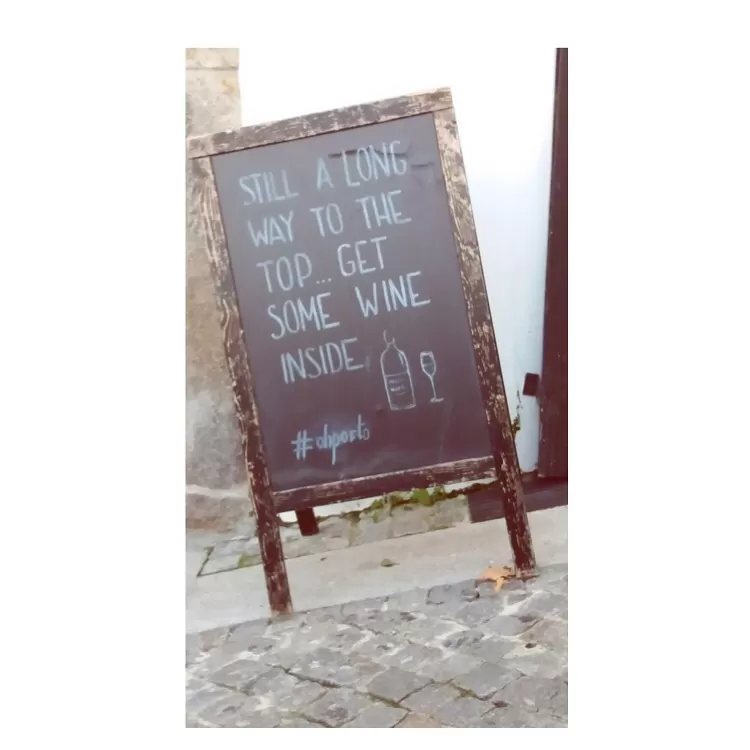 STILL A LONG
WAY TO THE
TOP... GET
SOME WINE
INSIDE
#ohporto